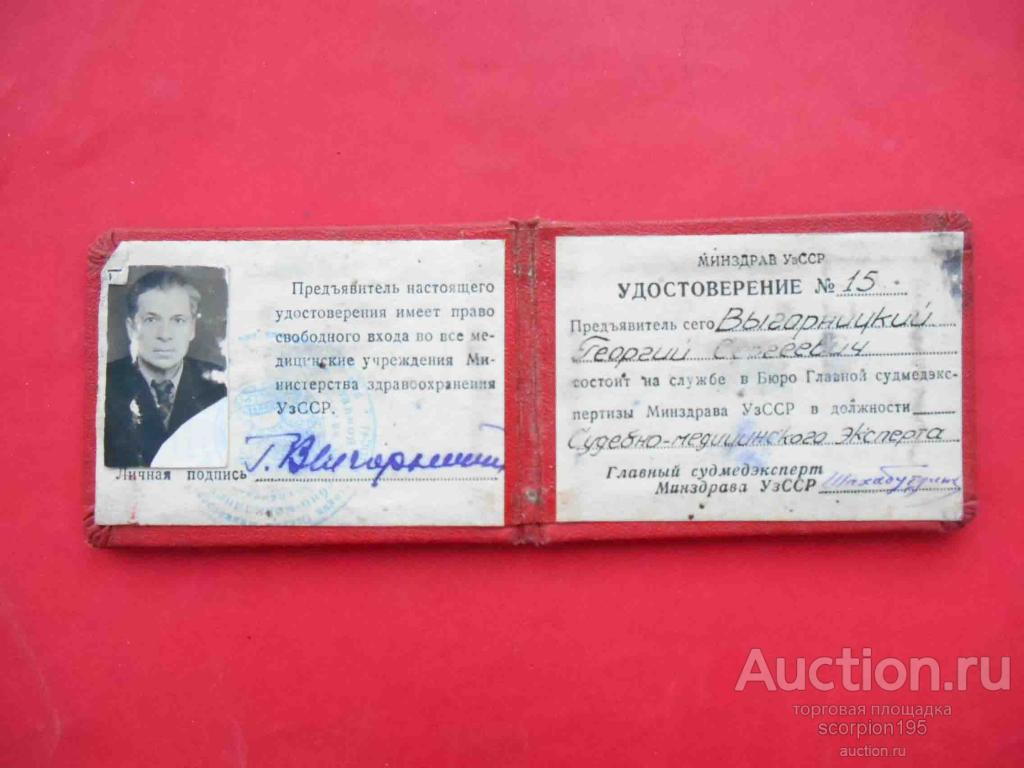 Предъявитель настоящего
удостоверения имеет право
свободного входа во все ме-
дицинские учреждения Ми-
нистерства здравоохранения
УзССР.
Личная подпись Г. Выгорницкий
МИНЗДРАВ УзССР
УДОСТОВЕРЕНИЕ № 15
Предъявитель сего Выгорницкий
Георгий Сергеевич
состоит на службе в Бюро Главной судмедэкс-
пертизы Минздрава УзССР в должности
Судебно-медицинского эксперта
Главный судмедэксперт
Минздрава УзССР
Auction.ru
торговая площадка
scorpion195
auction.ru